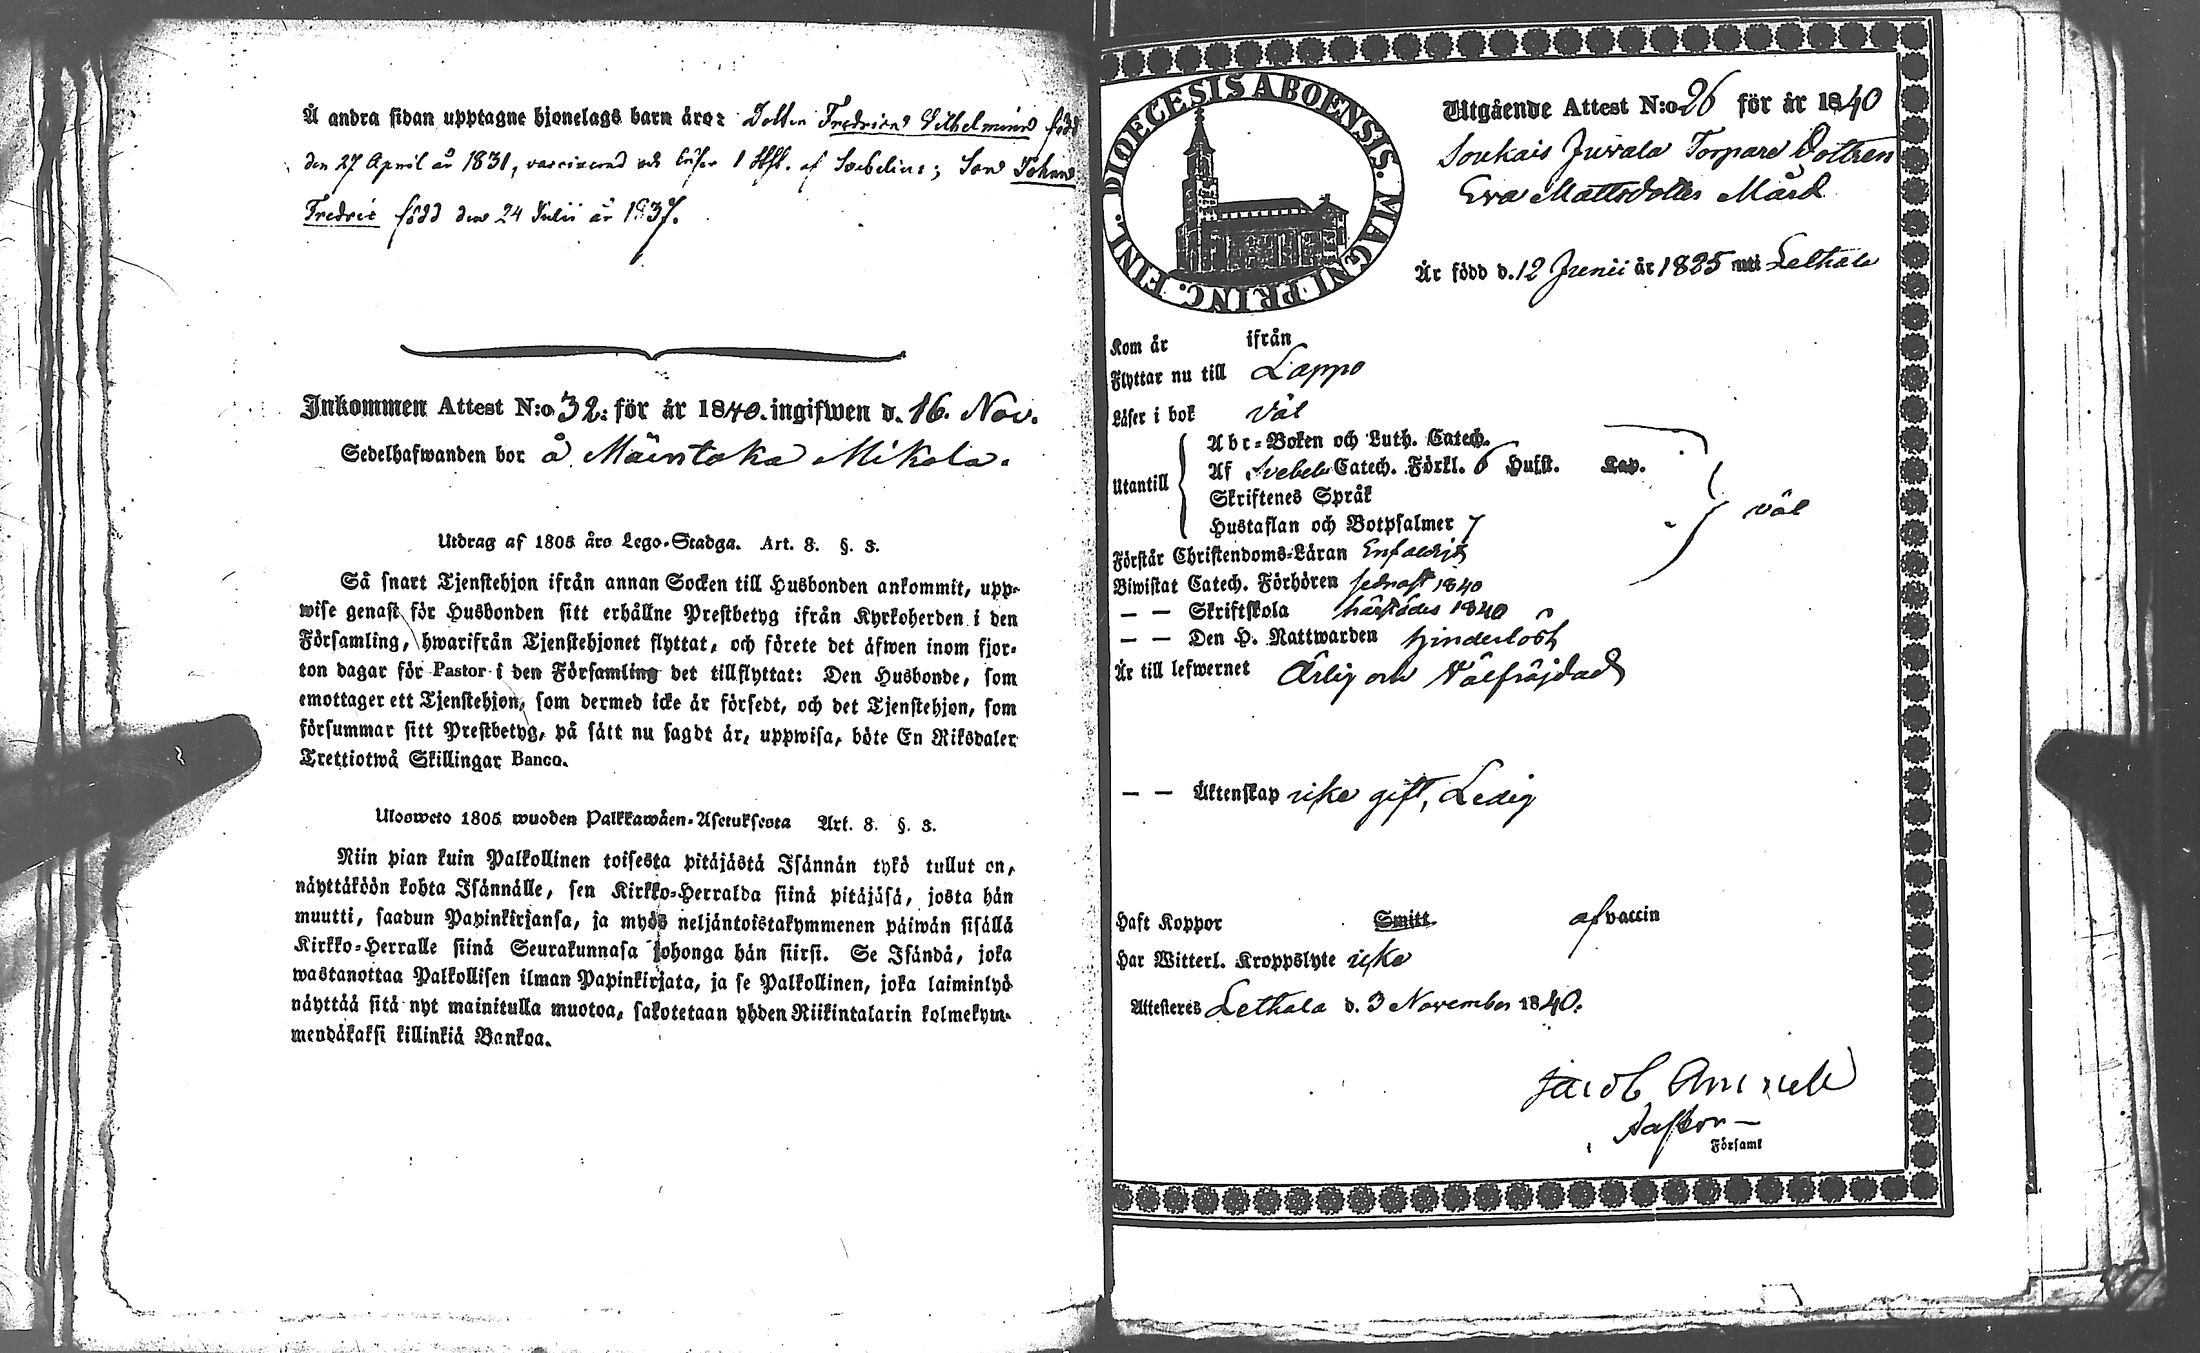 Å andra sidan upptagne hjonelags barn äro: Dottren Fredrica Wilhelmina född
den 27 April år 1831, vaccinerad och läser 1 Hfst. af Svebelius; Son Johan
Fredric född den 24 Julii år 1837.
Inkommen Attest N:o 32: för år 1840. ingifwen d. 16. Nov.
Sedelhafwanden bor å Mäentaka Mikola.
Utdrag af 1805 års Lego-Stadga. Art. 8. §. 3.
Så snart Tjenstehjon ifrån annan Socken till Husbonden ankommit, upp-
wise genast för Husbonden sitt erhållne Prestbetyg ifrån Kyrkoherden i den
Församling, hwarifrån Tjenstehjonet flyttat, och förete det äfwen inom fjor-
ton dagar för Pastor i den Församling det tillflyttat: Den Husbonde, som
emottager ett Tjenstehjon, som dermed icke är försedt, och det Tjenstehjon, som
försummar sitt Prestbetyg, på sätt nu sagdt är, uppwisa, böte En Riksdaler
Trettiotwå Skillingar Banco.
Ulosweto 1805 wuoden Palkkawäen-Asetuksesta Art. 8. §. 3.
Niin pian kuin Palkollinen toisesta pitäjästä Isännän tykö tullut on,
näyttäköön kohta Isännälle, sen Kirkko-Herralda siinä pitäjäsä, josta hän
muutti, saadun Papinkirjansa, ja myös neljäntoistakymmenen päiwän sisällä
Kirkko-Herralle siinä Seurakunnasa johonga hän siirsi. Se Isändä, joka
wastanottaa Palkollisen ilman Papinkirjata, ja se Palkollinen, joka laiminlyö
näyttää sitä nyt mainitulla muotoa, sakotetaan yhden Riikintalarin kolmekym-
mendäkaksi killinkiä Bankoa.
FINL. DIOECESIS ABOENSIS. MAGNI PRINC.
Utgående Attest N:o 26 för år 1840
Soukais Juvala Torpare Dottren
Eva Mattsdotter Mård
Är född d. 12 Junii år 1825 uti Lethala
Kom år ifrån
Flyttar nu till Lappo
Läser i bok väl
Utantill
Abc-Boken och Luth. Catech.
Af Svebeli Catech. Förkl. 6 Hufst. Kap.
Skriftenes Språk
Hustaflan och Botpsalmer 7
väl
Förstår Christendoms-Läran Enfaldigt
Biwistat Catech. Förhören sednast 1840
— — Skriftskola härstädes 1840
— — Den H. Nattwarden hinderlöst
Är till lefwernet Ärlig och Välfräjdad
— — Äktenskap icke gift, Ledig
Haft Koppor Smitt af vaccin
Har Witterl. Kroppslyte icke
Attesteres Lethala d. 3 November 1840.
Jacob
Pastor
Församl